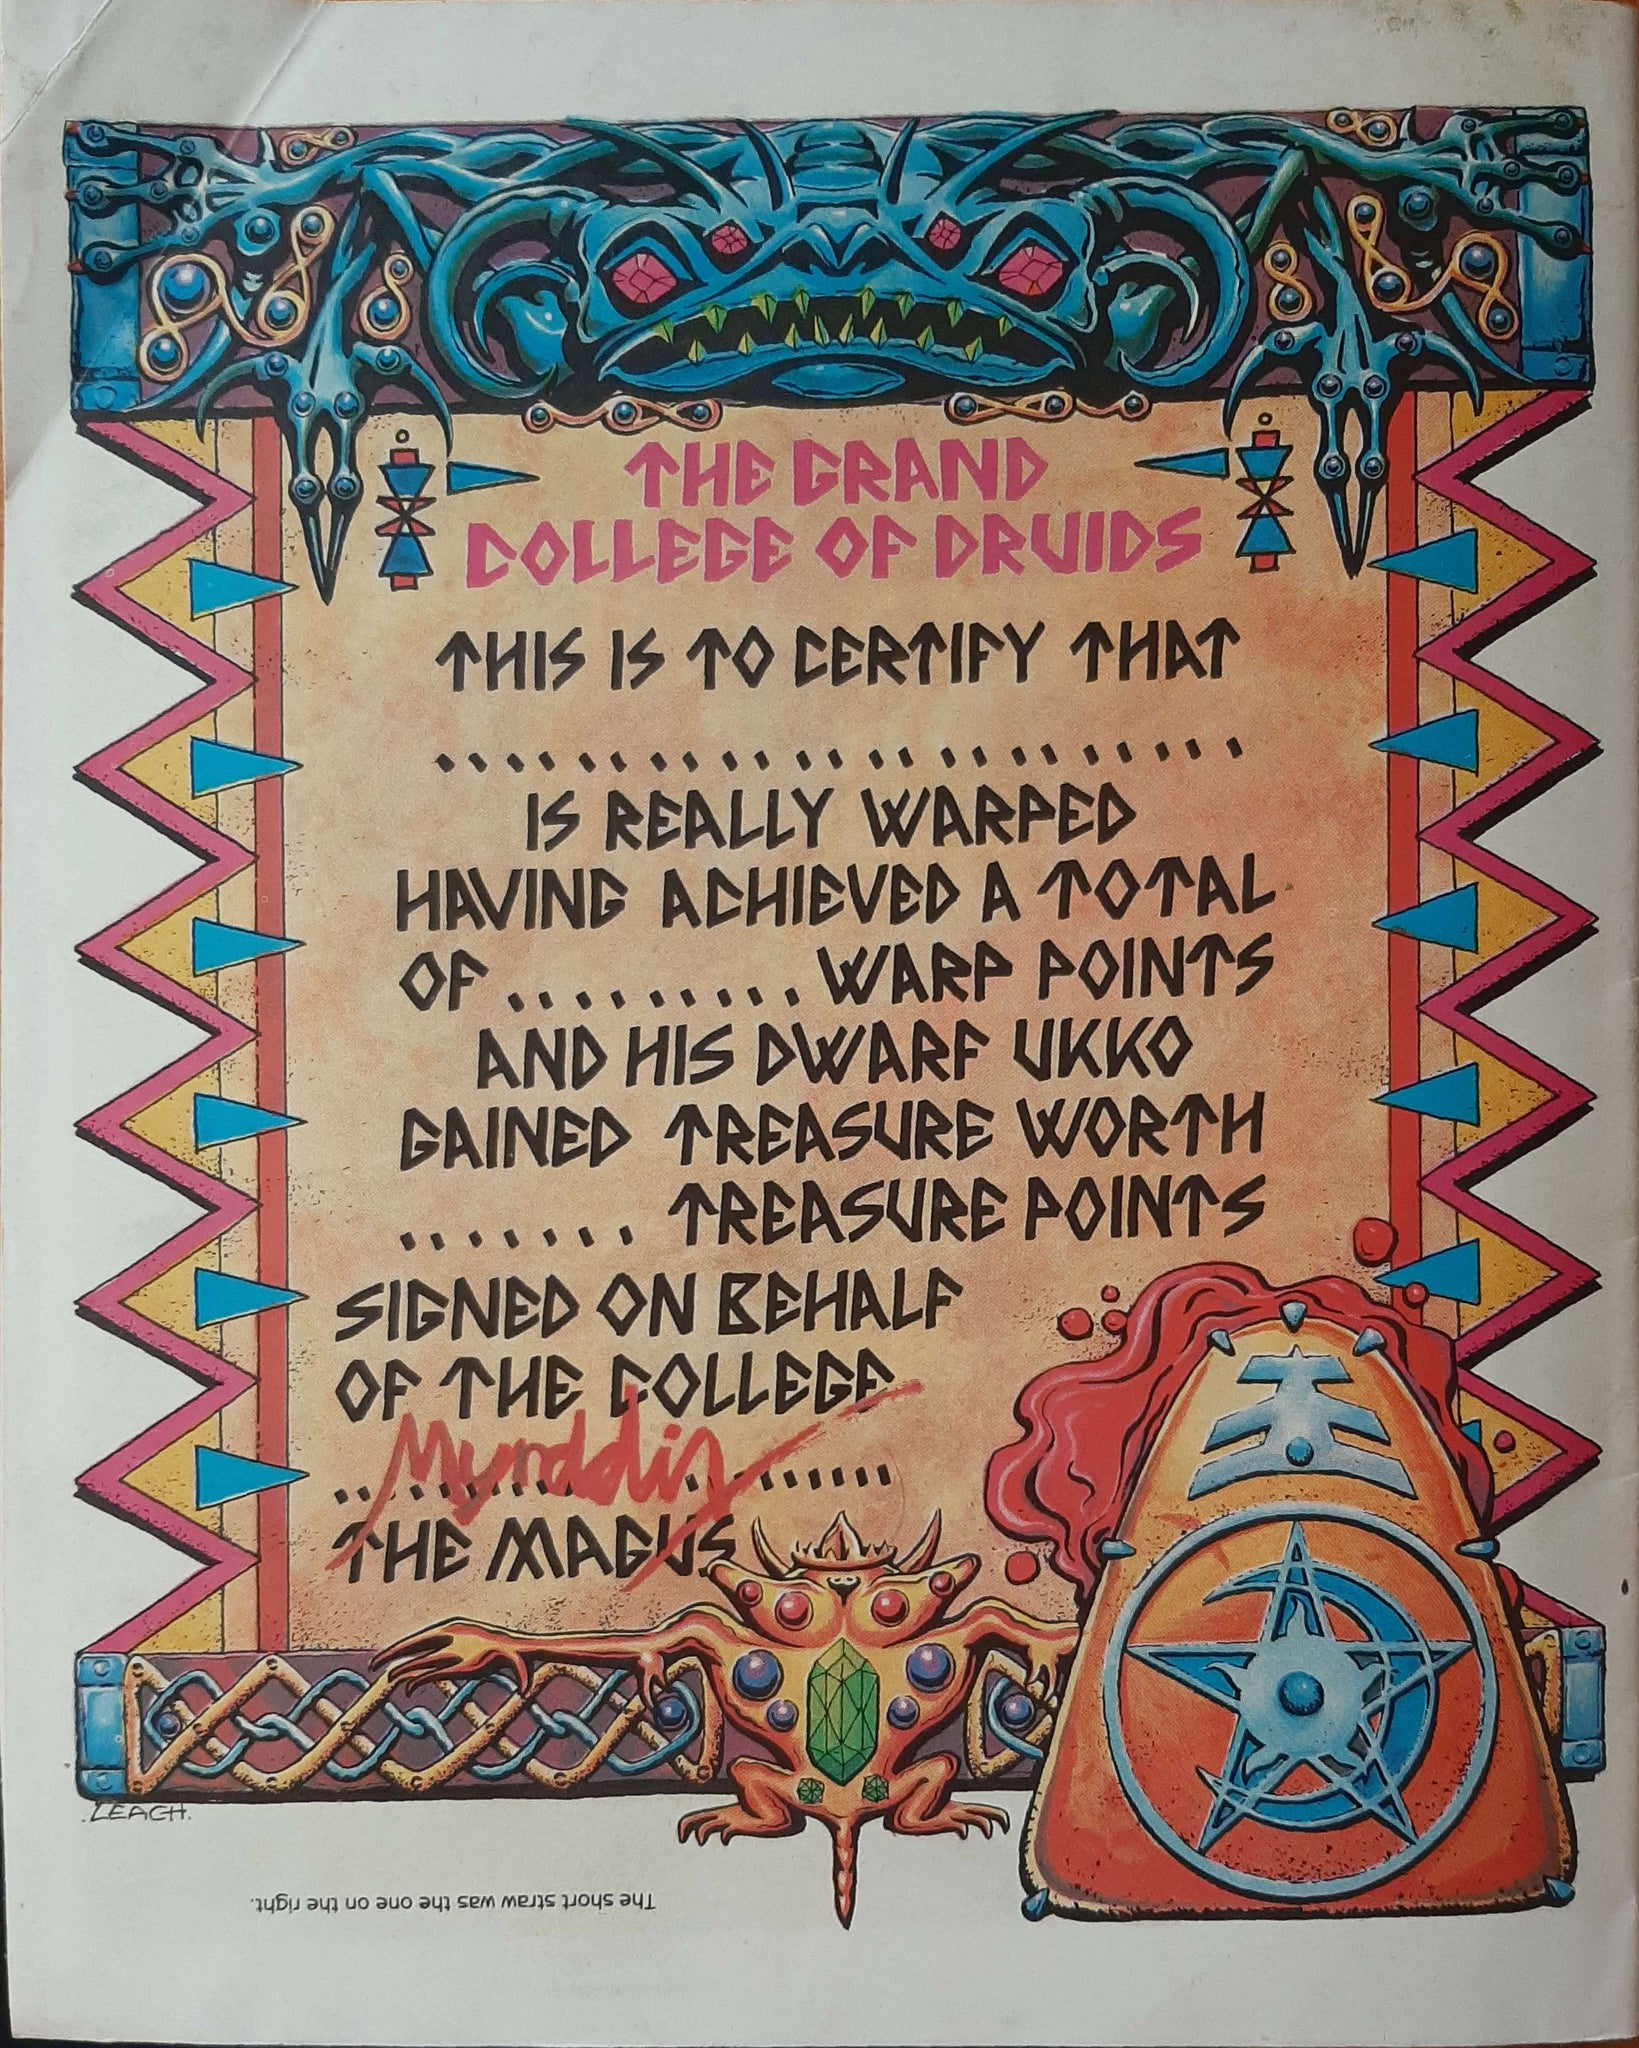 THE GRAND
COLLEGE OF DRUIDS
THIS IS TO CERTIFY THAT
.......................
IS REALLY WARPED
HAVING ACHIEVED A TOTAL
OF ......... WARP POINTS
AND HIS DWARF UKKO
GAINED TREASURE WORTH
....... TREASURE POINTS
SIGNED ON BEHALF
OF THE COLLEGE
Murddis
THE MAGUS
LEACH.
The short straw was the one on the right.